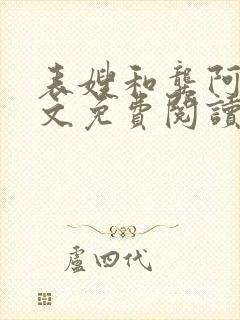 表嫂和龔阿
文免費閱讀
盧四代